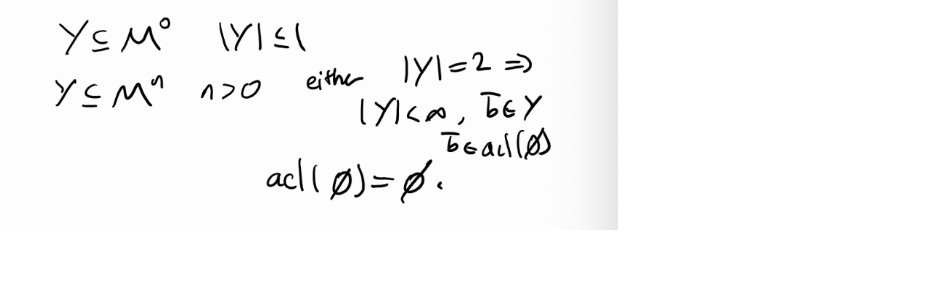 Y ⊆ M⁰ |Y| ≤ 1
Y ⊆ Mⁿ n>0 either |Y|=2 ⇒
|Y|<∞, b̄∈Y
b̄∈acl(∅)
acl(∅)=∅.